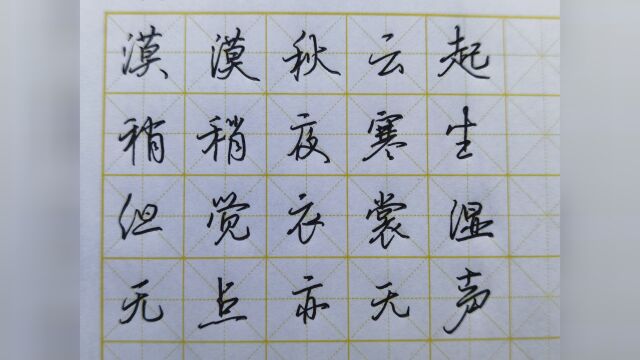 漠漠秋云起
稍稍夜寒生
但觉衣裳湿
无点亦无声